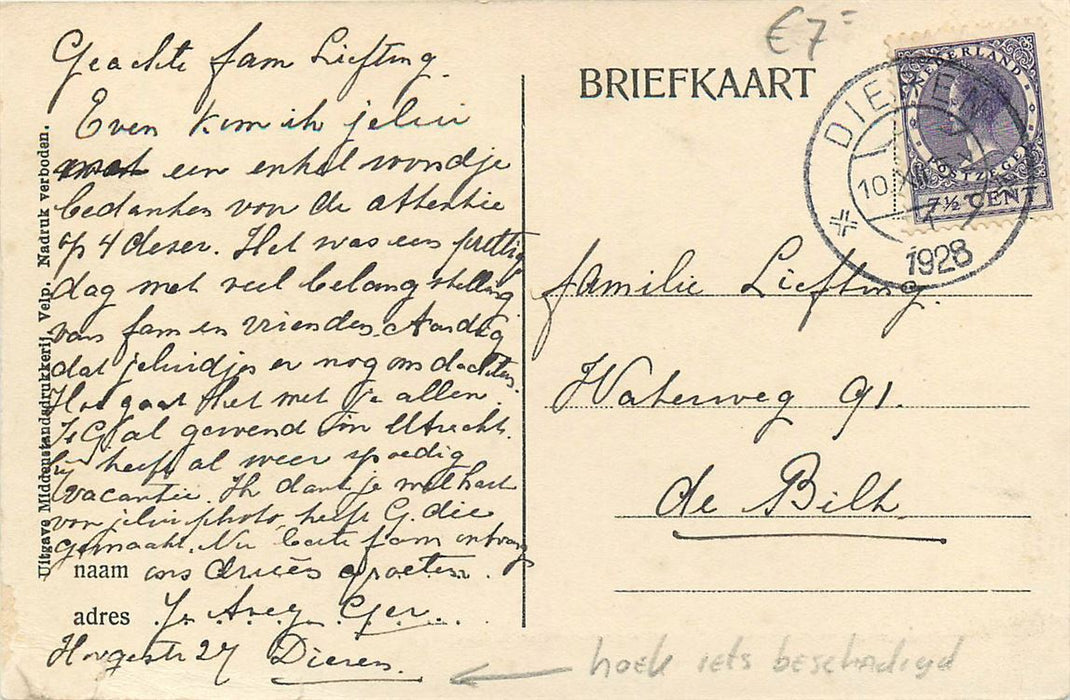 Geachte fam Liefting.
Even kom ik jelui
een enkel woordje
bedanken voor de attentie
op 4 deser. Het was een prettige
dag met veel belangstelling
van fam en vrienden. Aardig
dat jeluidjes er nog ons dachten.
Hoe gaat het met je allen.
Is G al gewend in Utrecht.
hij heeft al weer spoedig
vacantie. Ik dank je wel hart
voor jelui photo, heeft G. die
gemaakt. Nu beste fam ontvang
naam ons drieës groeten.
adres
Hoogestr 27 Dieren.
Uitgave Middenstandsdrukkerij, Velp. Nadruk verboden.
€7=
BRIEFKAART
NEDERLAND
POSTZEGEL
7½ CENT
DIEREN
10 XII
1928
familie Liefting.
Waterweg 91.
de Bilt
hoek iets beschadigd